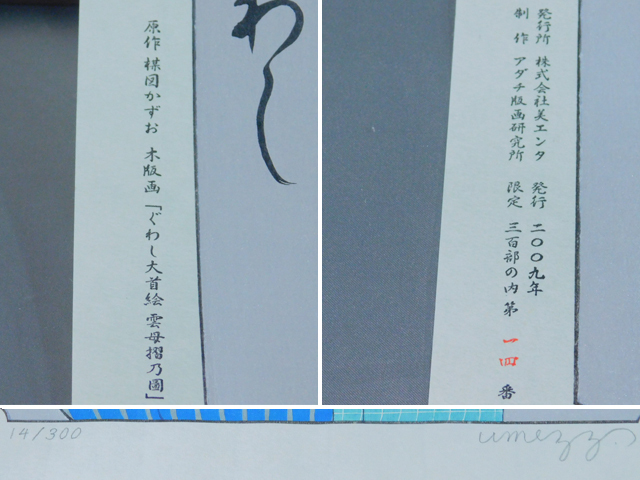 わし
原作 楳図かずお 木版画「ぐわし大首絵 雲母摺乃圖」
発行所 株式会社美エンタ 発行 二〇〇九年
制作 アダチ版画研究所 限定 三百部の内 第 一四 番
14/300
umezz.